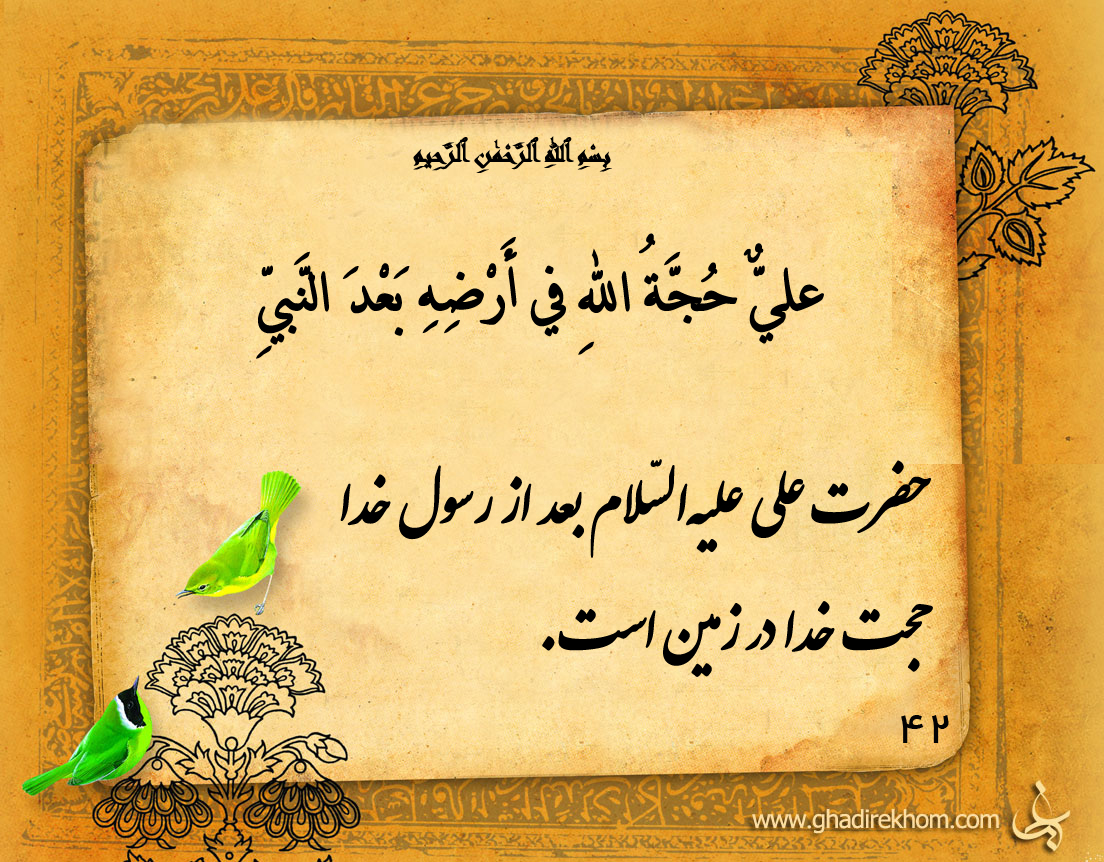 بِسْمِ ٱللَّهِ ٱلرَّحْمَٰنِ ٱلرَّحِيمِ
عليٌّ حُجَّةُ اللهِ في أَرْضِهِ بَعْدَ النَّبيِّ
حضرت علی علیه‌السّلام بعد از رسول خدا
حجت خدا در زمین است.
۴۲
www.ghadirekhom.com